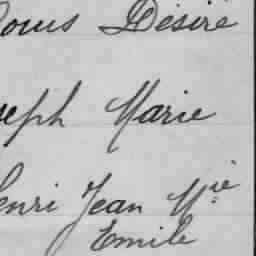 Louis Désiré
Joseph Marie
Henri Jean Mie
Emile